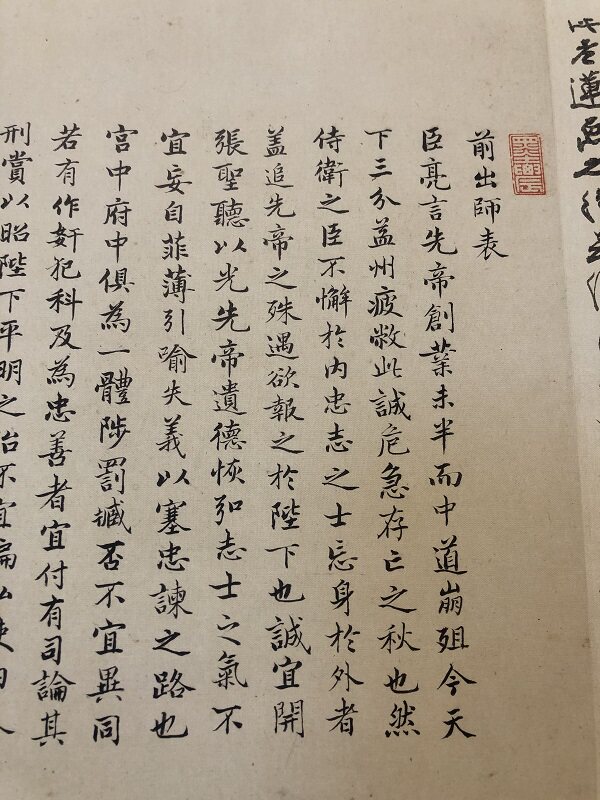 前出師表
臣亮言先帝創業未半而中道崩殂今天
下三分益州疲敝此誠危急存亡之秋也然
侍衛之臣不懈於内忠志之士忘身於外者
盖追先帝之殊遇欲報之於陛下也誠宜開
張聖聽以光先帝遺德恢弘志士之氣不
宜妄自菲薄引喻失義以塞忠諫之路也
宮中府中俱為一體陟罰臧否不宜異同
若有作奸犯科及為忠善者宜付有司論其
刑賞以昭陛下平明之治不宜偏私使内